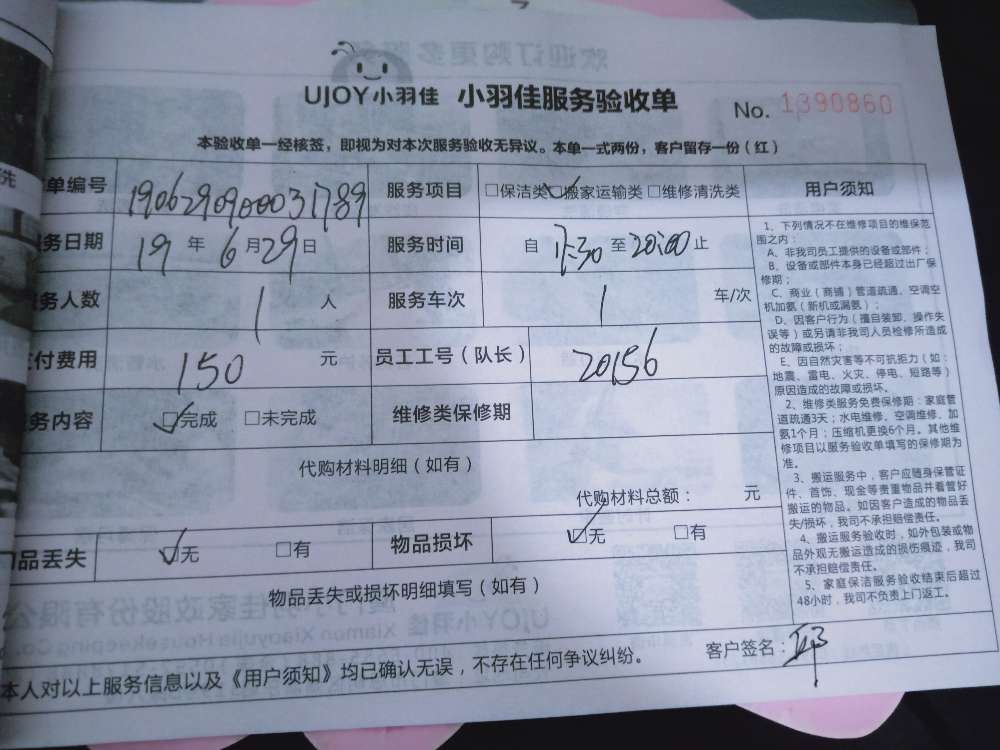 UJOY小羽佳 小羽佳服务验收单 No. 1390860
本验收单一经核签，即视为对本次服务验收无异议。本单一式两份，客户留存一份（红）
单编号 190629090031789 服务项目 □保洁类 ☑搬家运输类 □维修清洗类 用户须知
务日期 19 年 6 月 29 日 服务时间 自 至 20:00 止
务人数 1 人 服务车次 1 车/次
付费用 150 元 员工工号（队长） 20156
务内容 ☑完成 □未完成 维修类保修期
代购材料明细（如有）
代购材料总额： 元
品丢失 ☑无 □有 物品损坏 ☑无 □有
物品丢失或损坏明细填写（如有）
本人对以上服务信息以及《用户须知》均已确认无误，不存在任何争议纠纷。 客户签名：
1、下列情况不在维修项目的维保范
围之内：
A、非我司员工提供的设备或部件；
B、设备或部件本身已经超过出厂保
修期；
C、商业（商铺）管道疏通、空调空
机加氨（新机或漏氨）；
D、因客户行为（擅自装卸、操作失
误等）或另请非我司人员检修所造成
的故障或损坏；
E、因自然灾害等不可抗拒力（如：
地震、雷电、火灾、停电、短路等）
原因造成的故障或损坏。
2、维修类服务免费保修期：家庭管
道疏通3天；水电维修、空调维修、加
氨1个月；压缩机更换6个月。其他维
修项目以服务验收单填写的保修期为
准。
3、搬运服务中，客户应随身保管证
件、首饰、现金等贵重物品并看管好
搬运的物品。如因客户造成的物品丢
失/损坏，我司不承担赔偿责任。
4、搬运服务验收时，如外包装或物
品外观无搬运造成的损伤痕迹，我司
不承担赔偿责任。
5、家庭保洁服务验收结束后超过
48小时，我司不负责上门返工。